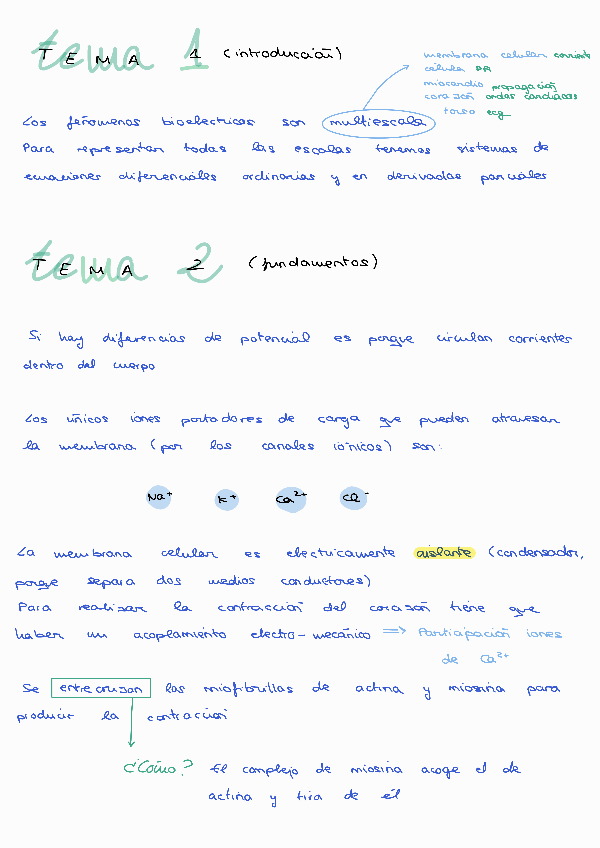 tema 1
TEMA 1 (introducción)
membrana celular corriente
célula PA
miocardio propagación
corazón ondas cardíacas
torso ecg
Los fenómenos bioeléctricos son multiescala
Para representar todas las escalas tenemos sistemas de
ecuaciones diferenciales ordinarias y en derivadas parciales
tema 2
TEMA 2 (fundamentos)
Si hay diferencias de potencial es porque circulan corrientes
dentro del cuerpo
Los únicos iones portadores de carga que pueden atravesar
la membrana (por los canales iónicos) son:
Na+ K+ Ca2+ Cl-
La membrana celular es eléctricamente aislante (condensador,
porque separa dos medios conductores)
Para realizar la contracción del corazón tiene que
haber un acoplamiento electro-mecánico => Participación iones
de Ca2+
Se entrecruzan las miofibrillas de actina y miosina para
producir la contracción
¿Cómo? El complejo de miosina acoge el de
actina y tira de él